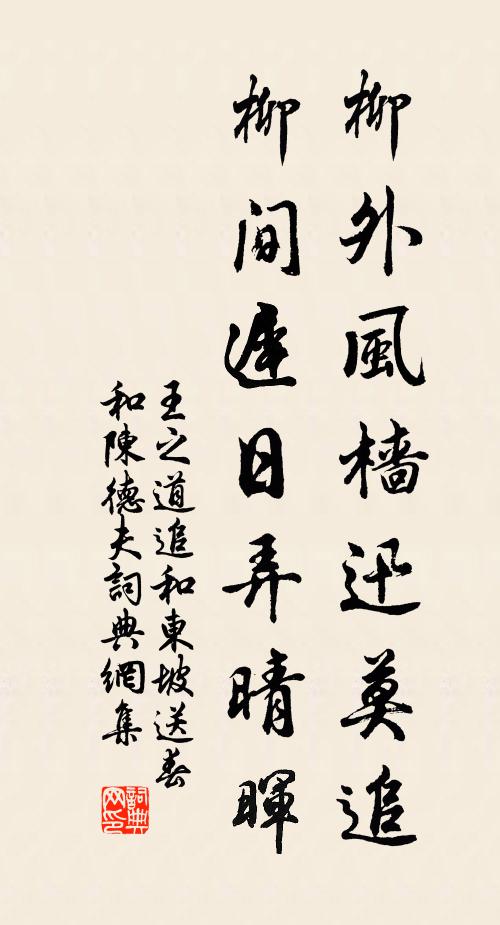 柳外風檣迅莫追
柳間遲日弄晴暉
王之道追和東坡送春
和陳德夫詞典網集
詞典網印